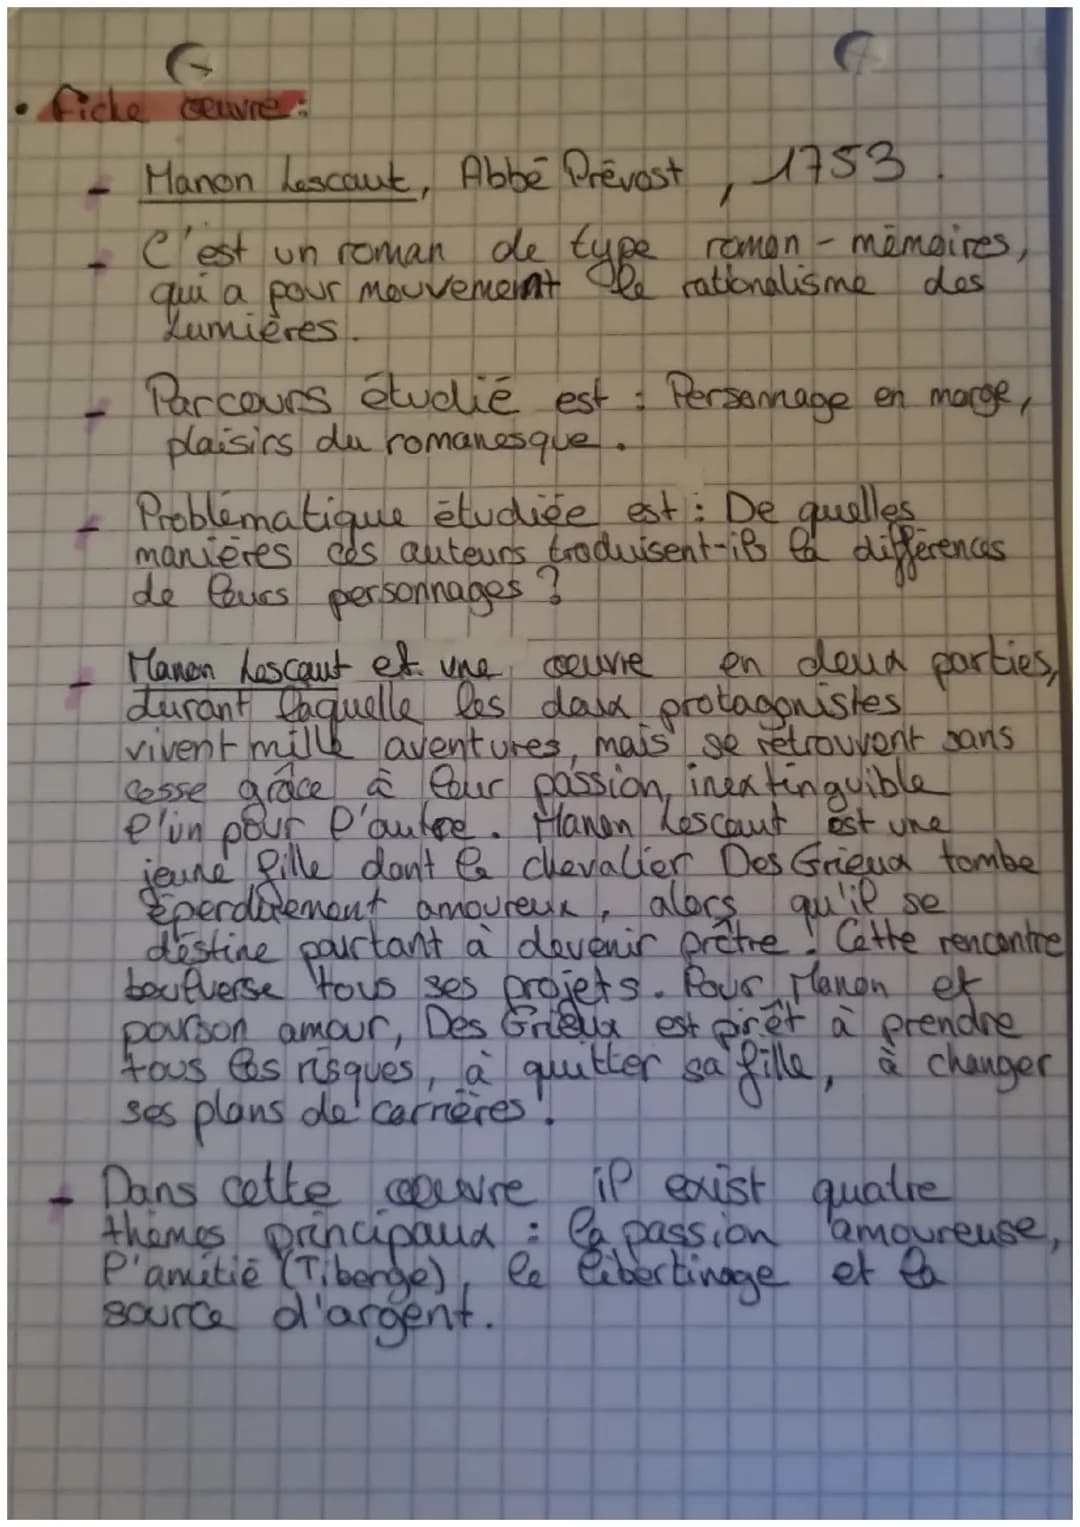 • Fiche œuvre :
- Manon Lescaut, Abbé Prévost, 1753.
- C'est un roman de type roman-mémoires,
qui a pour mouvement le rationalisme des
Lumières.
- Parcours étudié est : Personnage en marge,
plaisirs du romanesque.
- Problématique étudiée est : De quelles
manières ces auteurs traduisent-ils la différences
de leurs personnages ?
- Manon Lescaut et une œuvre en deux parties,
durant laquelle les deux protagonistes
vivent mille aventures, mais se retrouvent sans
cesse grâce à leur passion inextinguible
l'un pour l'autre. Manon Lescaut est une
jeune fille dont le chevalier Des Grieux tombe
éperdument amoureux, alors qu'il se
déstine pourtant à devenir prêtre ! Cette rencontre
boulverse tous ses projets. Pour Manon et
pourson amour, Des Grieux est prêt à prendre
tous les risques, à quitter sa fille, à changer
ses plans de carrières !
- Dans cette œuvre il exist quatre
thèmes principaux : la passion amoureuse,
l'amitié (Tiberge), le libertinage et la
source d'argent.